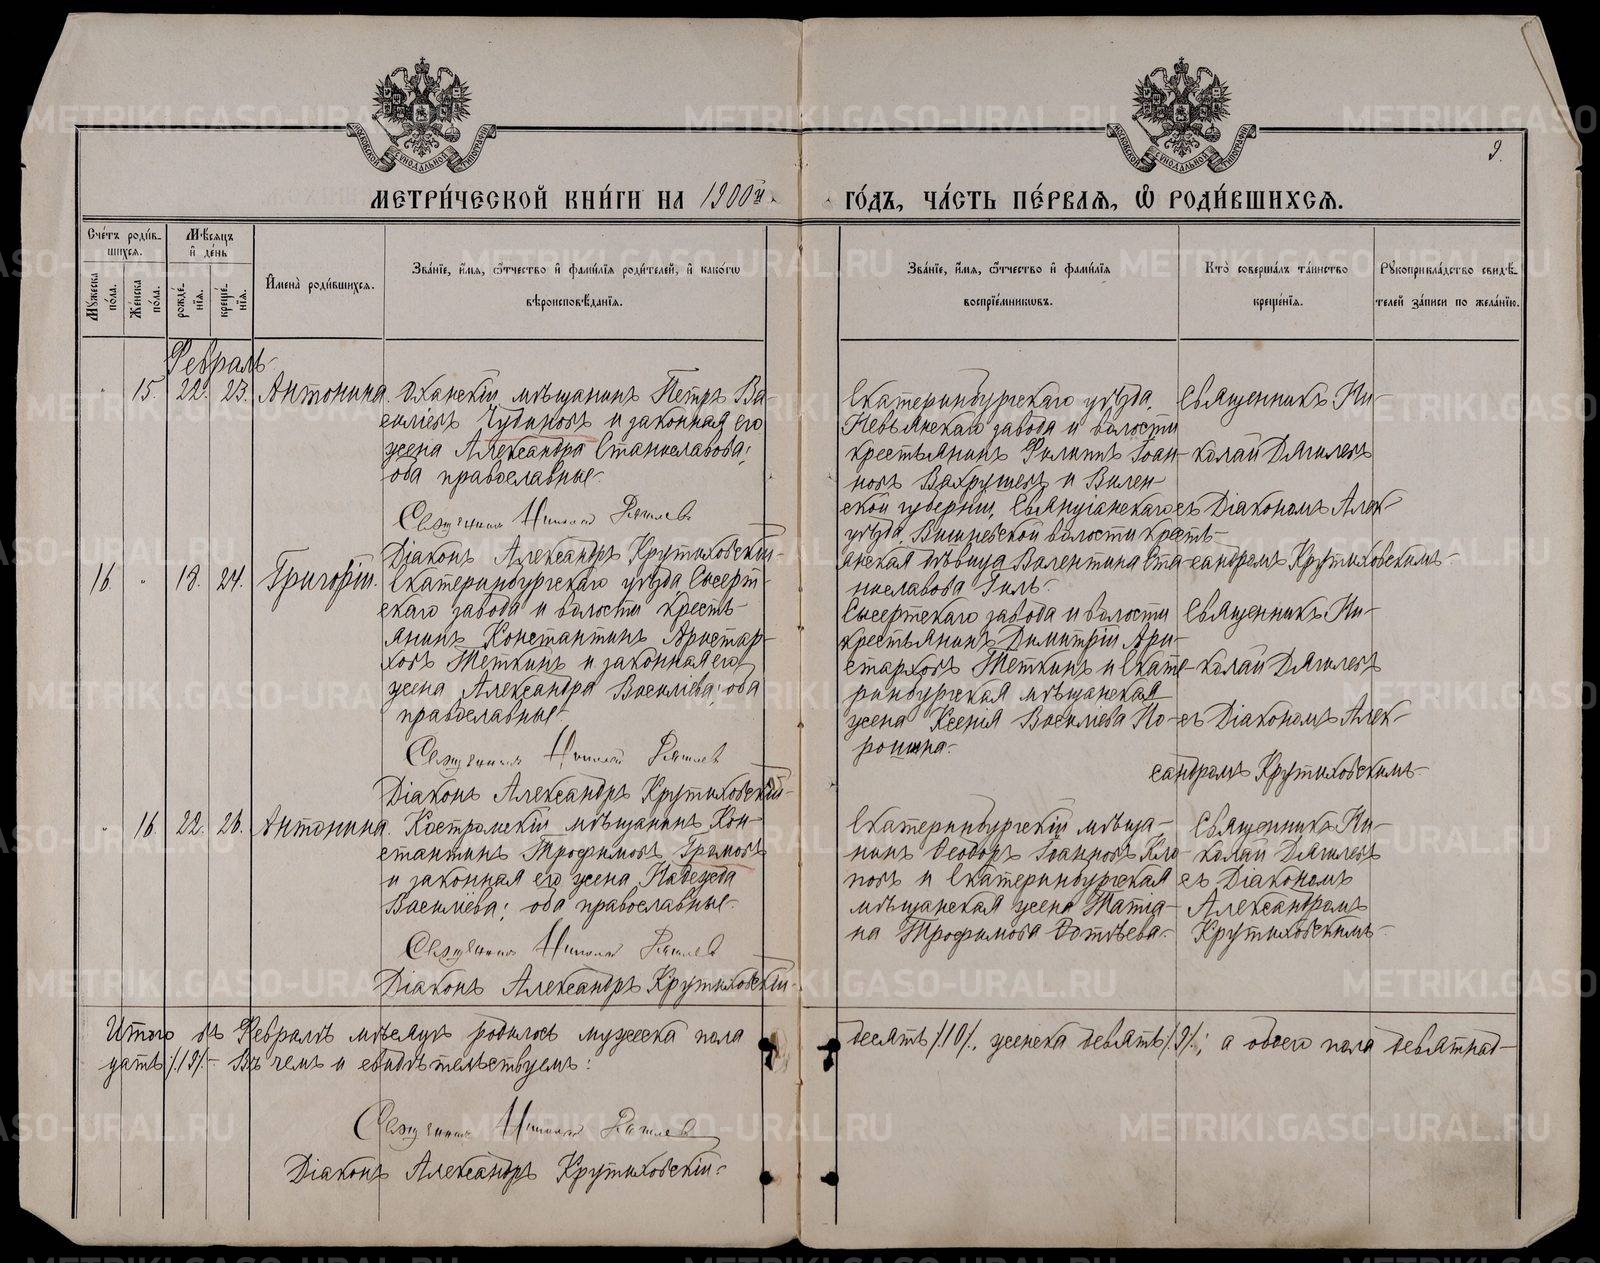 МОСКОВСКОЙ СѴНОДАЛЬНОЙ ТИПОГРАФІИ
МОСКОВСКОЙ СѴНОДАЛЬНОЙ ТИПОГРАФІИ
9.
МЕТРИ́ЧЕСКОЙ КНИ́ГИ НА 1900й
ГО́ДЪ, ЧА́СТЬ ПЕ́РВАѦ, Ѽ РОДИ́ВШИХСѦ.
Сче́тъ роди́в-
шихсѧ.
Мꙋжеска по́ла.
Же́нска по́ла.
Мѣ́сѧцъ
и҆ де́нь
рожде́нїѧ.
креще́нїѧ.
И҆мена̀ роди́вшихсѧ.
Зва́нїе, и҆́мѧ, ѻ҆́тчество и҆ фами́лїѧ роди́телей, и҆ како́гѡ
вѣроисповѣ́данїѧ.
Зва́нїе, и҆́мѧ, ѻ҆́тчество и҆ фами́лїѧ
воспрїе́мникѡвъ.
Кто̀ соверша́лъ та́инство
креще́нїѧ.
Рꙋкоприкла́дство свидѣ́-
телей за́писи по жела́нїю.
Февраль
15. 22. 23. Антонина.
Оханскій мѣщанинъ Петръ Ва-
силіевъ Чудиновъ и законная его
жена Александра Станиславова;
оба православные.
Священникъ Николай Дягилевъ
Діаконъ Александръ Крутиховскій
Екатеринбургскаго уѣзда,
Невьянскаго завода и волости
крестьянинъ Филиппъ Іоан-
новъ Вахрушевъ и Вилен-
ской губерніи, Свянціанскаго
уѣзда, Вишневской волости кресть-
янская дѣвица Валентина Ста-
ниславова Гиль.
Священникъ Ни-
колай Дягилевъ
съ Діакономъ Алек-
сандромъ Крутиховскимъ.
16. 18. 24. Григорій.
Екатеринбургскаго уѣзда, Сысерт-
скаго завода и волости кресть-
янинъ Константинъ Аристар-
ховъ Теткинъ и законная его
жена Александра Василіева; оба
православные.
Священникъ Николай Дягилевъ
Діаконъ Александръ Крутиховскій
Сысертскаго завода и волости
крестьянинъ Димитрій Ари-
старховъ Теткинъ и Екате-
ринбургская мѣщанская
жена Ксенія Василіева По-
рошина.
Священникъ Ни-
колай Дягилевъ
съ Діакономъ Алек-
сандромъ Крутиховскимъ.
16. 22. 26. Антонина.
Костромскій мѣщанинъ Кон-
стантинъ Трофимовъ Громовъ
и законная его жена Надежда
Василіева; оба православные.
Священникъ Николай Дягилевъ
Діаконъ Александръ Крутиховскій
Екатеринбургскій мѣща-
нинъ Ѳеодоръ Іоанновъ Кло-
повъ и Екатеринбургская
мѣщанская жена Татіа-
на Трофимова Фотѣева.
Священникъ Ни-
колай Дягилевъ
съ Діакономъ
Александромъ
Крутиховскимъ.
Итого въ Февралѣ мѣсяцѣ родилось мужеска пола десять /.10/., женска девять /.9/.; а обоего пола девятнад-
цать /.19/. Въ чемъ и свидѣтельствуемъ:
Священникъ Николай Дягилевъ
Діаконъ Александръ Крутиховскій.
METRIKI.GASO-URAL.RU